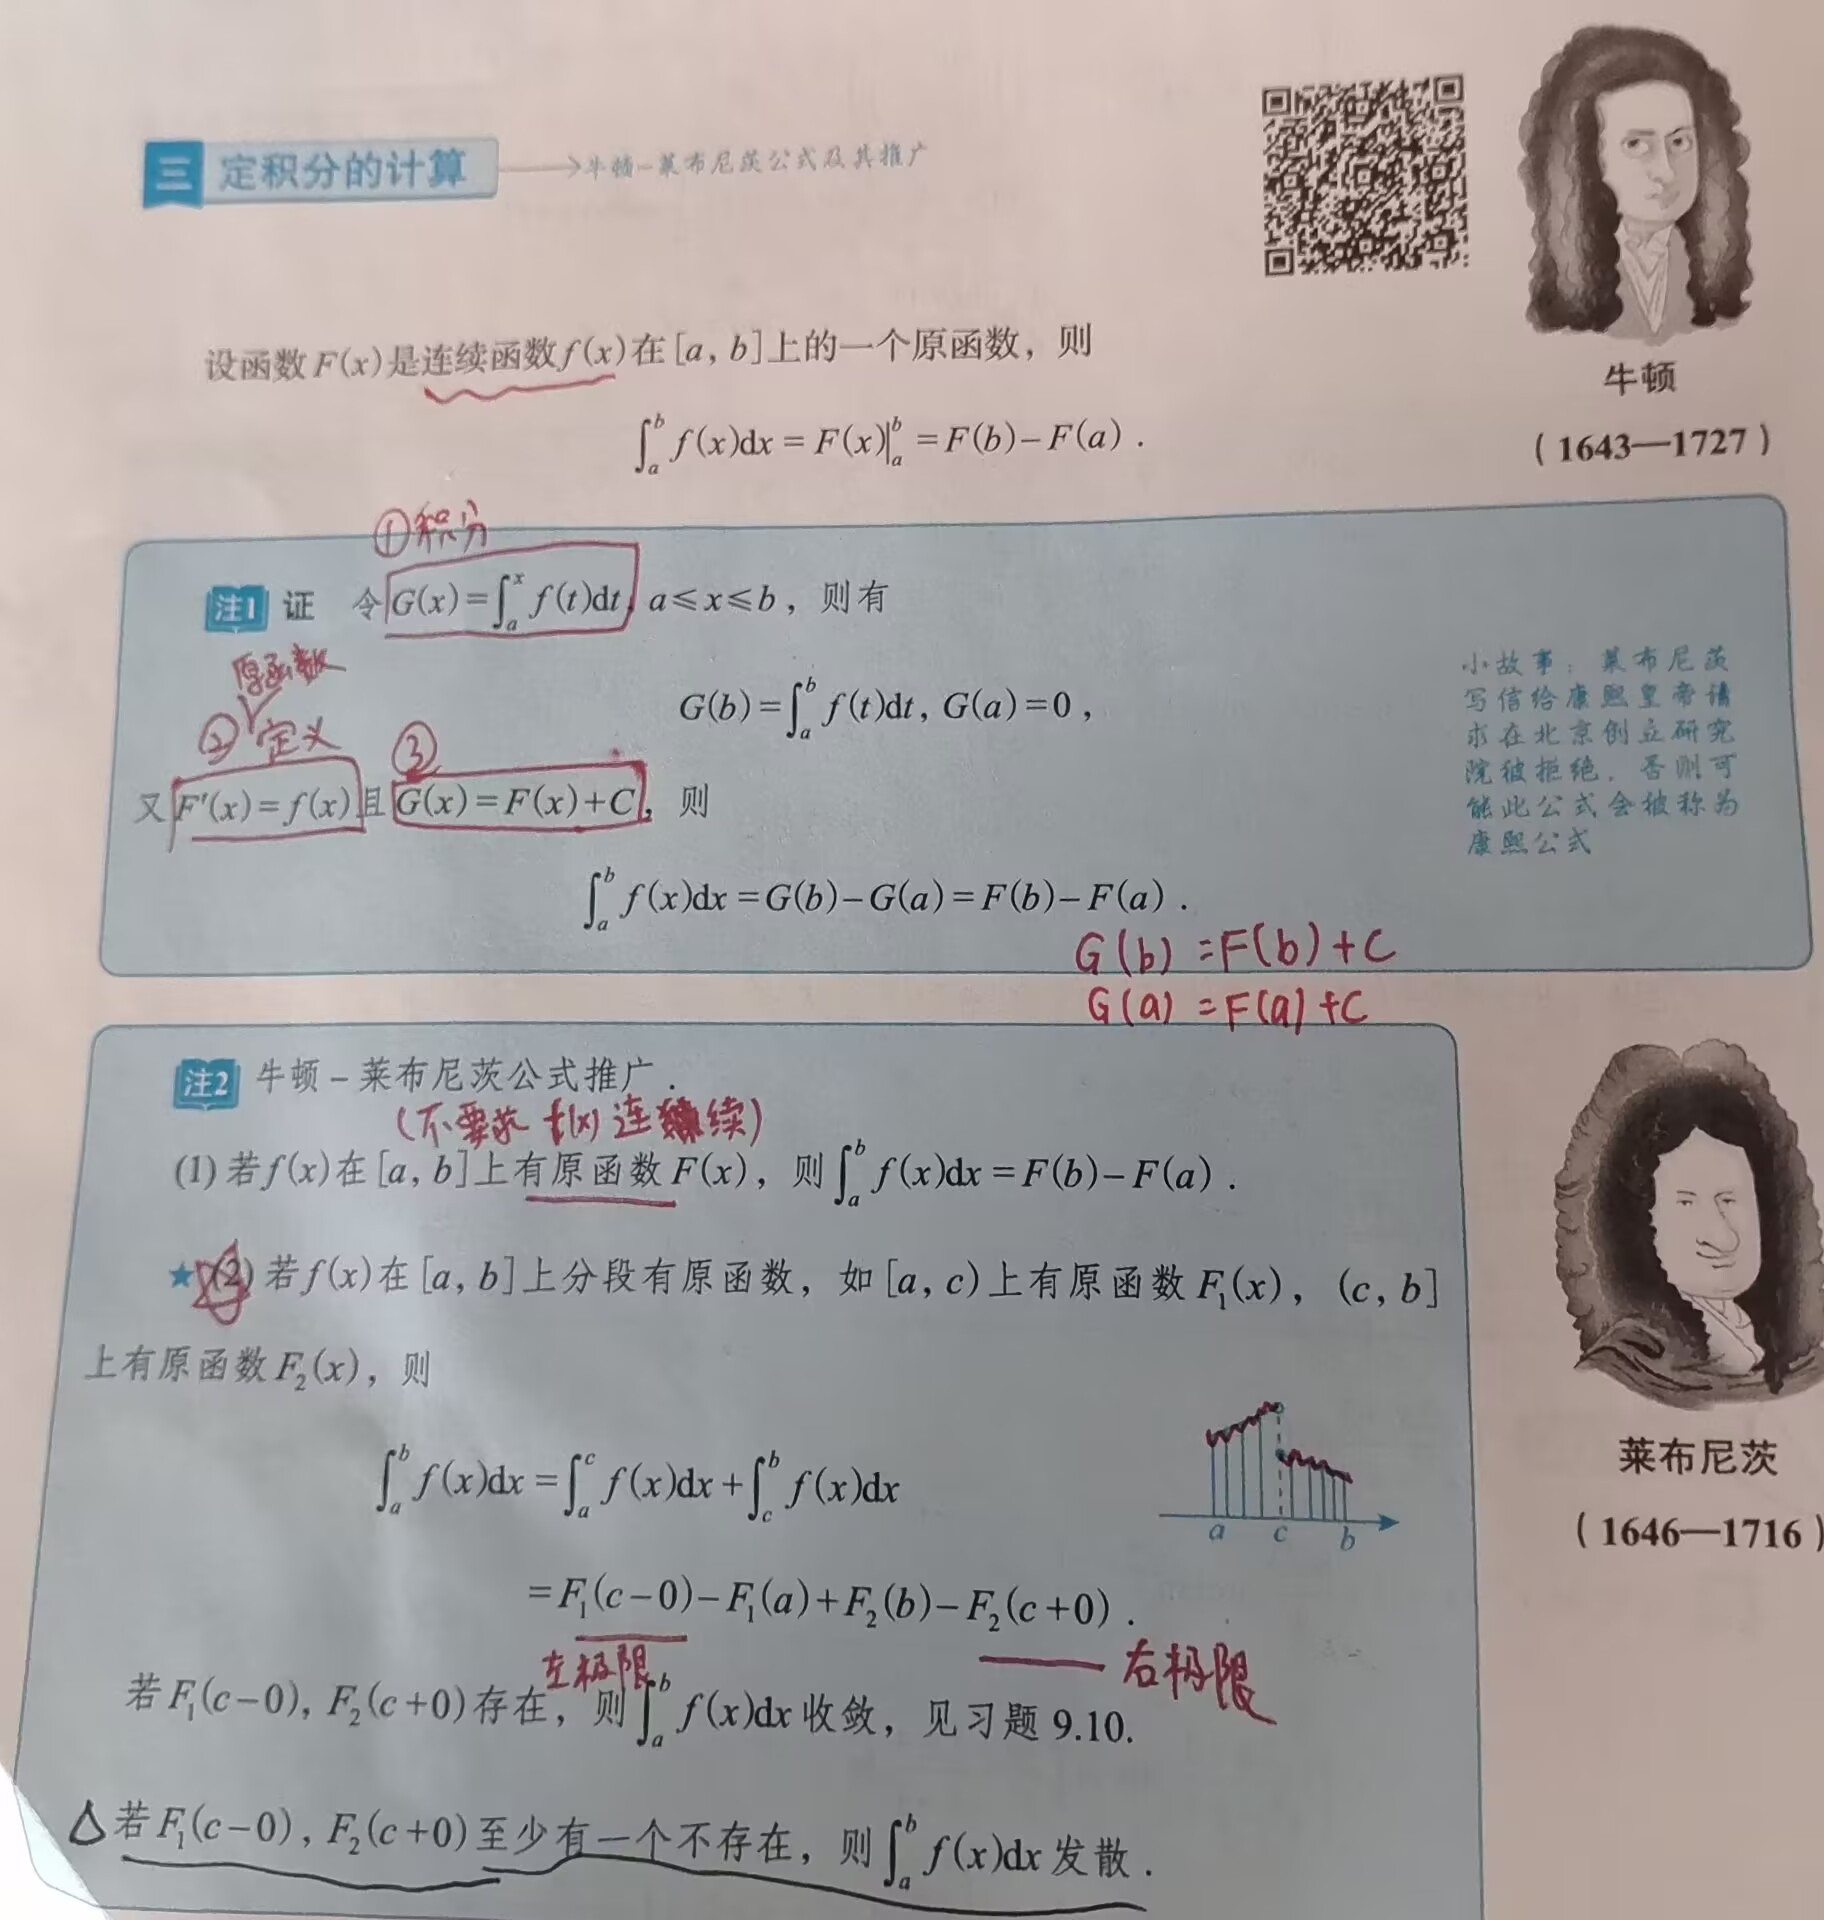 三 定积分的计算 → 牛顿-莱布尼茨公式及其推广
设函数F(x)是连续函数f(x)在[a, b]上的一个原函数，则
∫ₐᵇ f(x)dx = F(x)|ₐᵇ = F(b)-F(a) .
牛顿
(1643—1727)
①积分
注1 证 令G(x)=∫ₐˣ f(t)dt, a≤x≤b，则有
原函数
G(b)=∫ₐᵇ f(t)dt, G(a)=0，
② 定义 ③
又F′(x)=f(x)且G(x)=F(x)+C，则
∫ₐᵇ f(x)dx=G(b)-G(a)=F(b)-F(a) .
G(b) =F(b)+C
G(a) =F(a)+C
小故事：莱布尼茨
写信给康熙皇帝请
求在北京创立研究
院被拒绝，否则可
能此公式会被称为
康熙公式
注2 牛顿-莱布尼茨公式推广.
(不要求 f(x) 连续)
(1)若f(x)在[a, b]上有原函数F(x)，则∫ₐᵇ f(x)dx=F(b)-F(a) .
★(2)若f(x)在[a, b]上分段有原函数，如[a, c)上有原函数F₁(x)，(c, b]
上有原函数F₂(x)，则
∫ₐᵇ f(x)dx=∫ₐᶜ f(x)dx+∫_cᵇ f(x)dx
a c b
=F₁(c-0)-F₁(a)+F₂(b)-F₂(c+0) .
左极限 右极限
若F₁(c-0), F₂(c+0)存在，则∫ₐᵇ f(x)dx收敛，见习题9.10.
△若F₁(c-0), F₂(c+0)至少有一个不存在，则∫ₐᵇ f(x)dx发散.
莱布尼茨
(1646—1716)